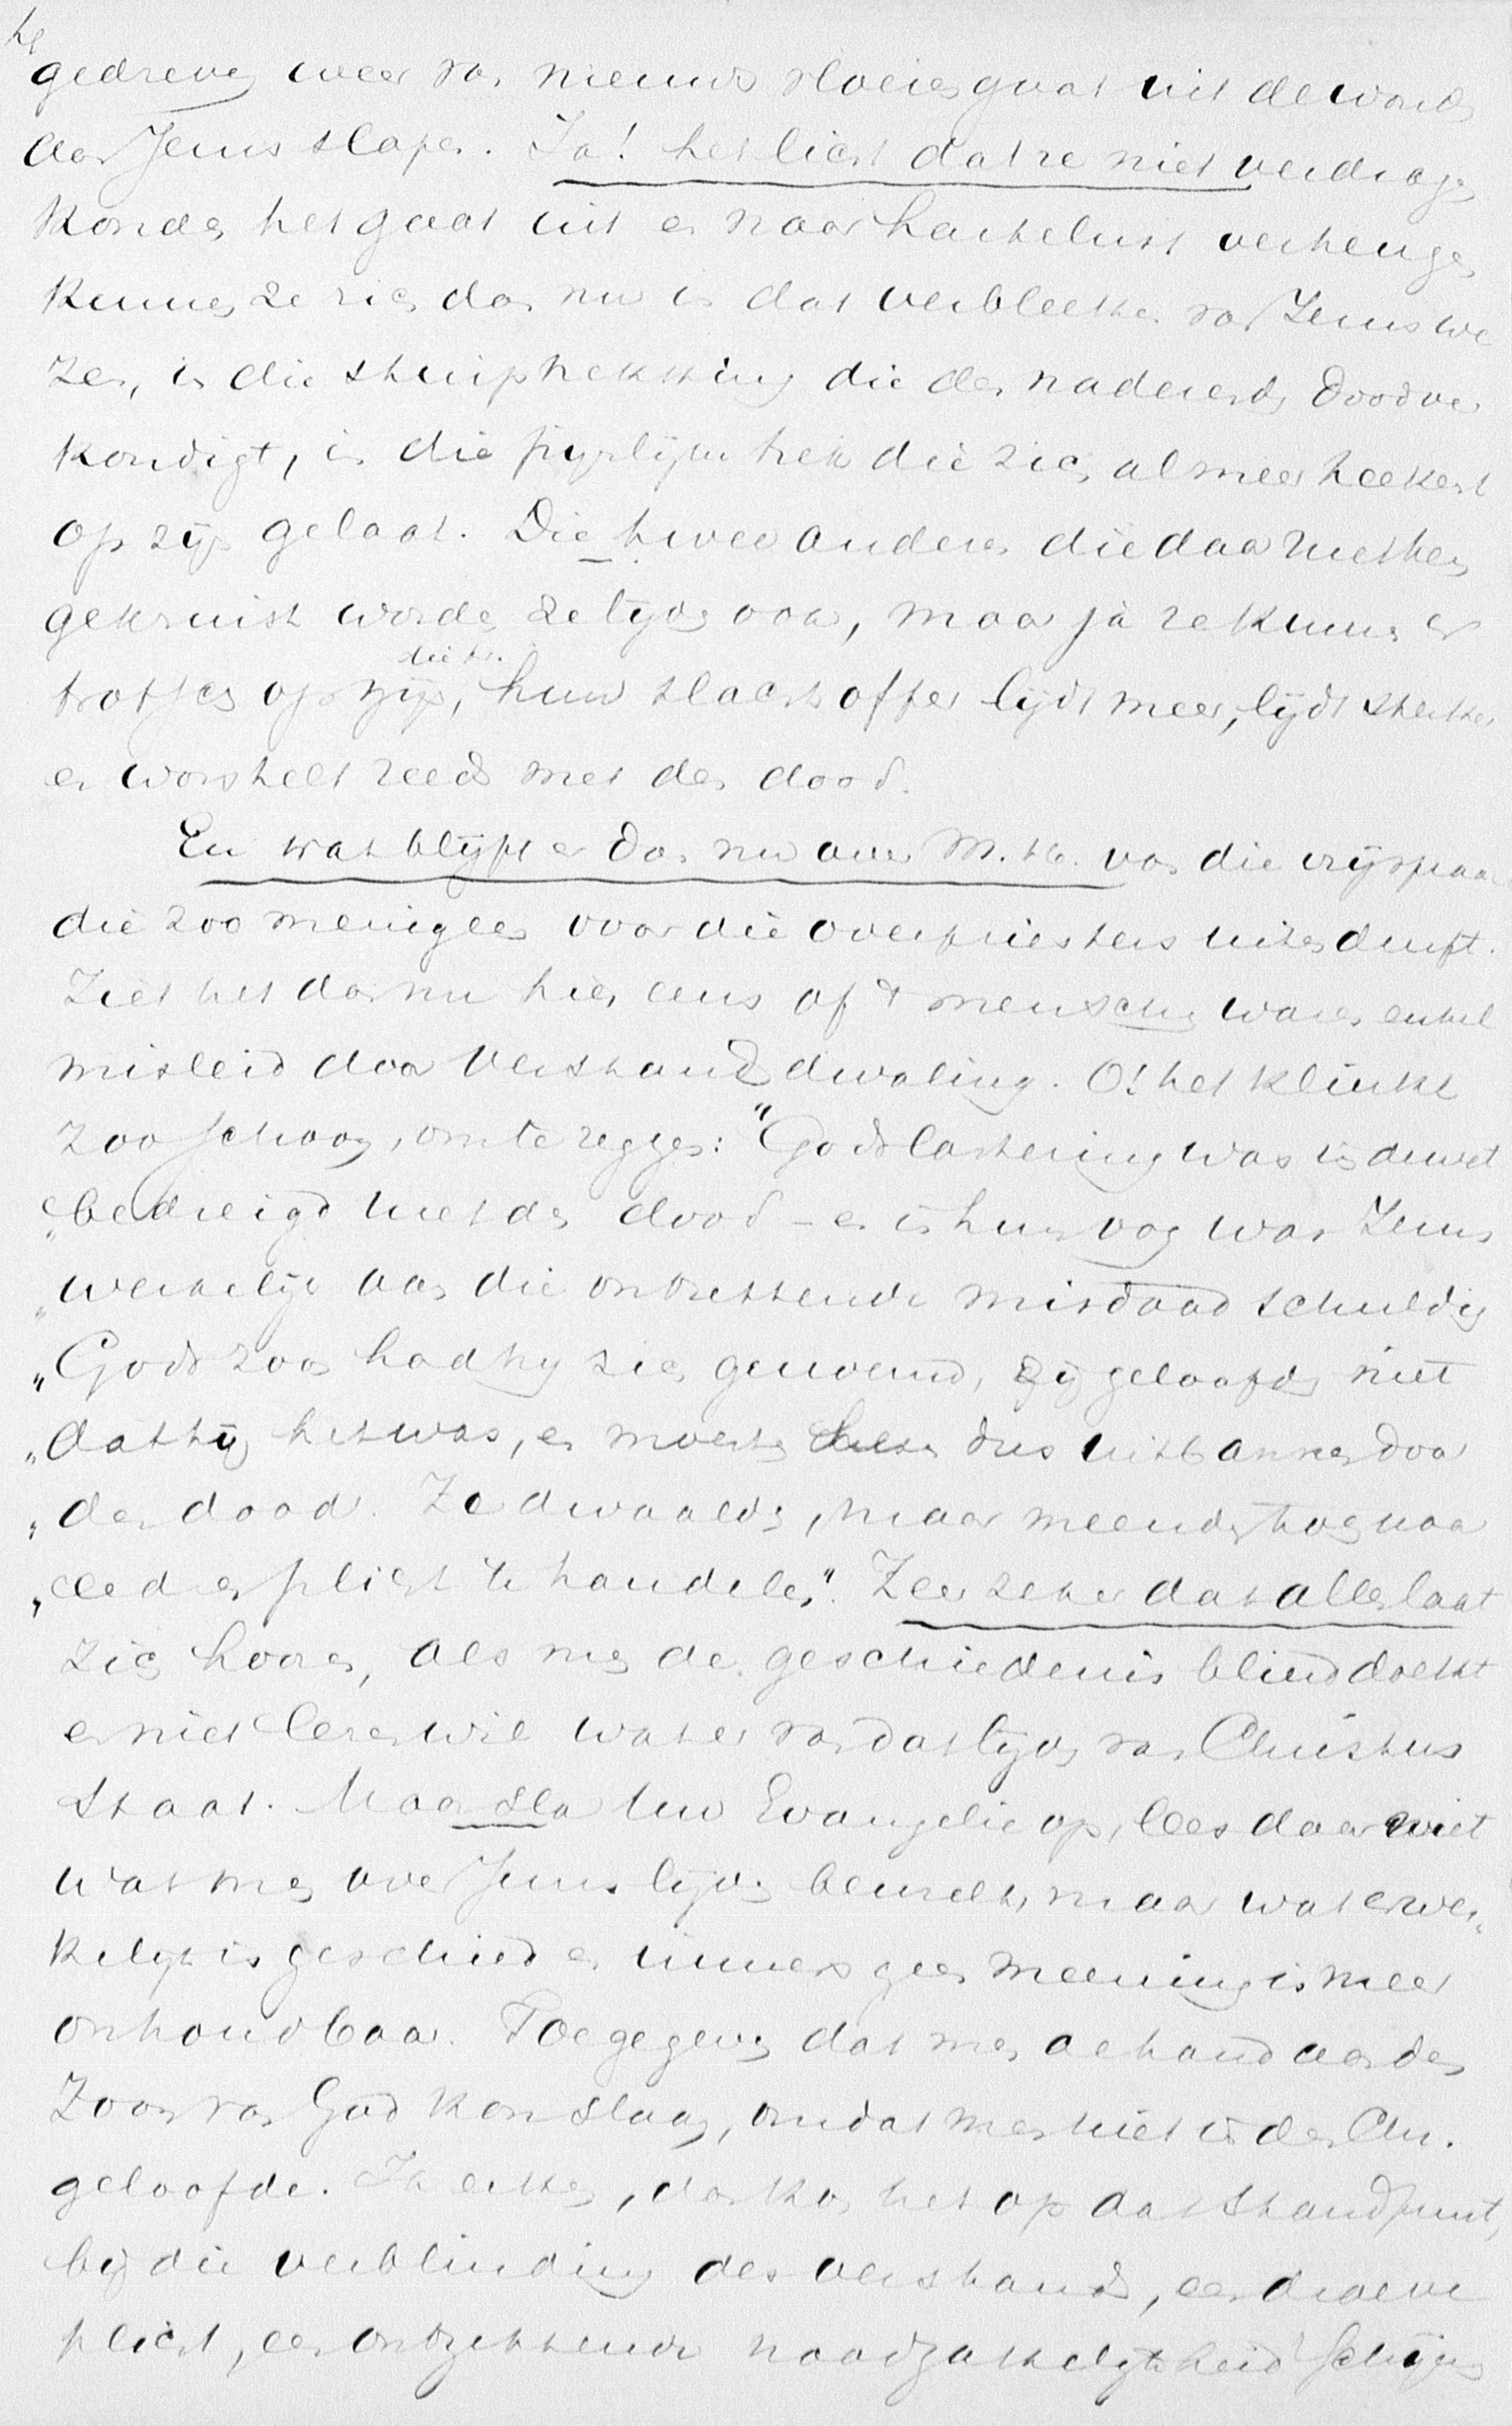 gedreven weer van nieuws vloeien gaat uit de wonde
aan Jezus slapen. Ja! het licht dat ze niet verdragen
konden het gaat uit en naar hartelust verheugen
kunnen ze zich dan nu in dat verbleeken van Jezus we
zen, in die stuiptrekking die den naderende dood ver
kondigt, in die pijnlijke trek die zich al meer teekent
op zijn gelaat. Die twee anderen die daar met hem
gekruist worden ze lijden ook, maar ja ze kunnen er
trotsch op zijn, hun slachtoffer lijdt meer, lijdt sterker
en worstelt reeds met den dood.
En wat blijft er dan nu over M. H. van die vrijspraak
die zoo menigeen voor die overpriesters uitendenkt.
Ziet het dan nu hier eens of 't menschen waren enkel
misleid door verstandsdwaling. O! het klinkt
zoo schoon, om te zeggen: "Godslastering was in de wet
"bedreigd met den dood - en in hun oog was Jezus
"werkelijk aan die ontzettende misdaad schuldig
"Gods zoon had hij zich genoemd, zij geloofden niet
"dat hij het was, en moesten dus uitbannen door
"den dood. Ze dwaalden, maar meenden toch naar
"eed en plicht te handelen". Zeer zeker dat alles laat
zich hooren, als men de geschiedenis blinddoekt
en niet lezen wil wat er van dat lijden van Christus
staat. Maar sla uw Evangelie op, lees daar niet
wat men over Jezus lijden beuzelt, maar wat er wer
kelijk is geschied en immers geen meening is meer
onhoudbaar. Toegegeven dat men de hand aan den
Zoon van God kon slaan, omdat men niet in den Chr.
geloofde. Ik erken, dan kon het op dat standpunt,
bij die verblinding des verstands, een droeve
plicht, een ontzettende noodzakelijkheid schijnen